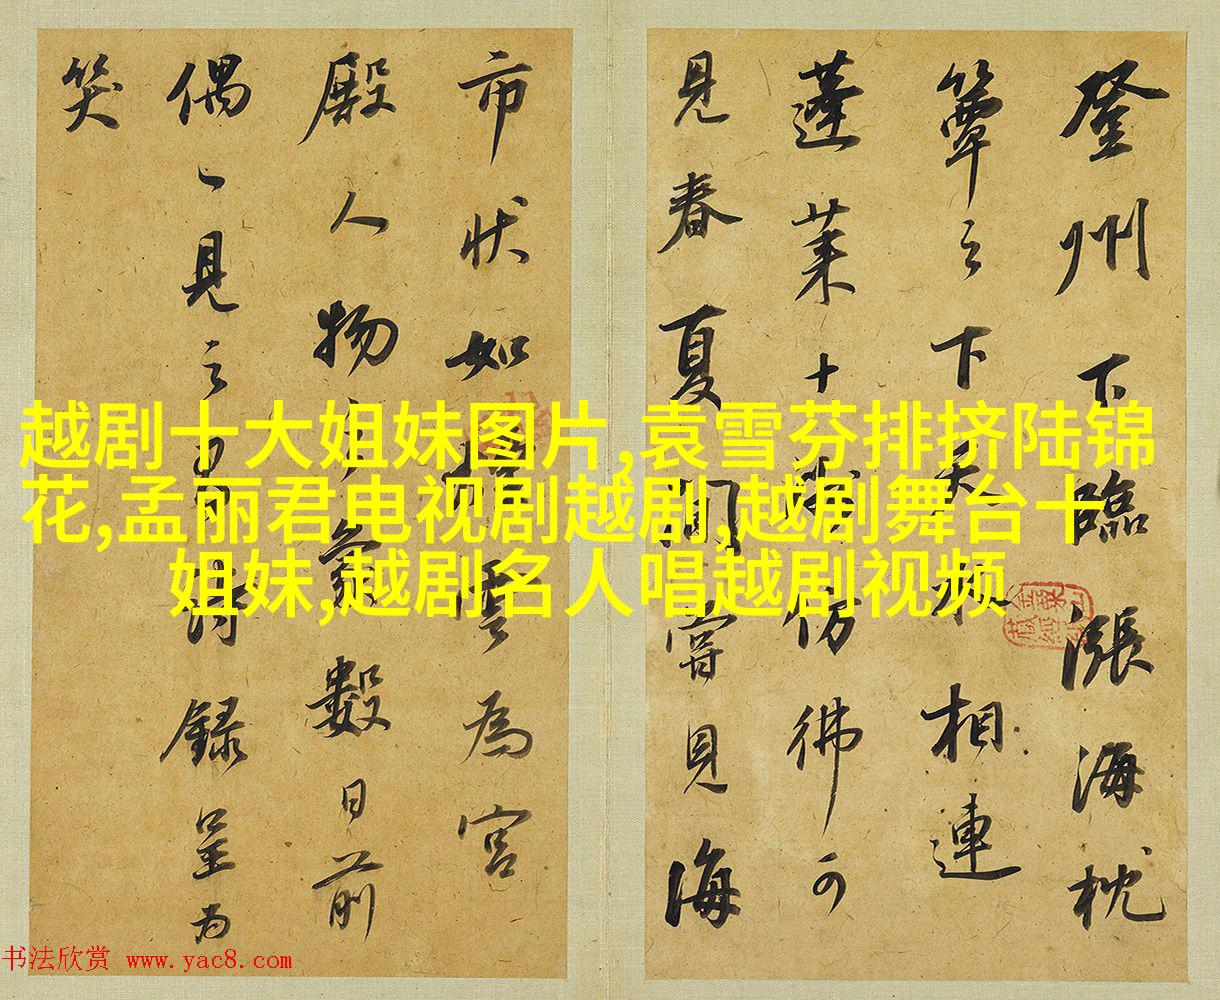 登州下臨漲海枕
簟之下天水相連
蓬萊十仿彿可
見春夏間嘗見海
市狀如煙雲為宮
殿人物之象數日前
偶一見之有詩錄呈為
笑
越剧十大姐妹图片,袁雪芬排挤陆锦
花,孟丽君电视剧越剧,越剧舞台十
姐妹,越剧名人唱越剧视频
书法欣赏 www.yac8.com